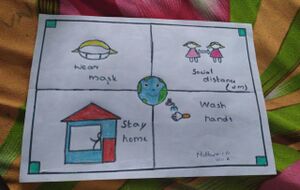 wear
mask
Social
distance
Wash
hands
Stay
home